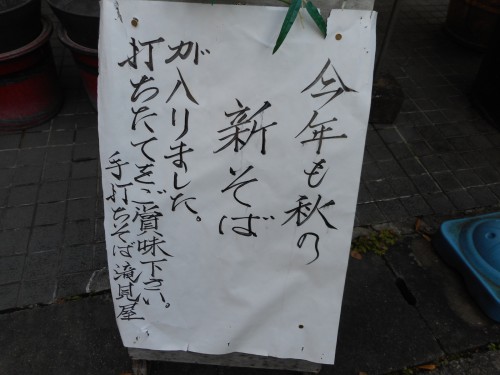 今年も秋の
新そば
が入りました。
打ちたてをご賞味下さい。
手打ちそば滝見屋